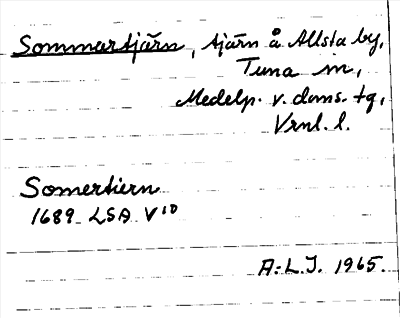 Sommartjärn, tjärn å Allsta by,
Tuna sn,
Medelp. v. doms. tg,
Vrnl. l.
Somertiern
1689 LSA V¹⁰
A:L.J. 1965.